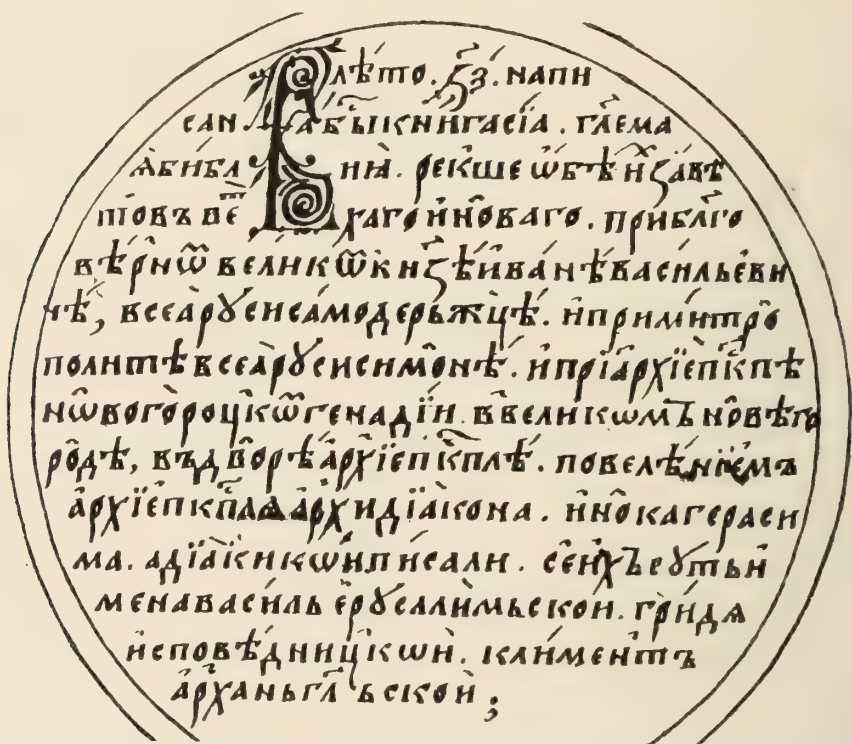 В лѣто ҂зз҃ напи
сана бы книга сїа. гл҃ема
ѧ библиꙗ. рекше ѡбѣихъ завѣ
товъ ветхаго и новаго. при бл҃го
вѣрнѡⷨ великѡⷨ кнѕѣ иванѣ васильеви
чѣ, всеа рꙋси самодерьжцѣ. и при митро
политѣ всеа рꙋси симонѣ. и при архїепⷭ҇кпѣ
нѡвогороцкѡⷨ генадїи. в великѡмъ новѣго
родѣ, въ дворѣ архїепⷭ҇кплѣ. повелѣнїемъ
архїепⷭ҇кплѧ архидїакона. инока гераси
ма. а дїаки кѡи писали. се ихъ сꙋть и
мена василь ерꙋсалимьскои. гридѧ
исповѣдницкѡи. климентъ
арханьгл҃ьскои;